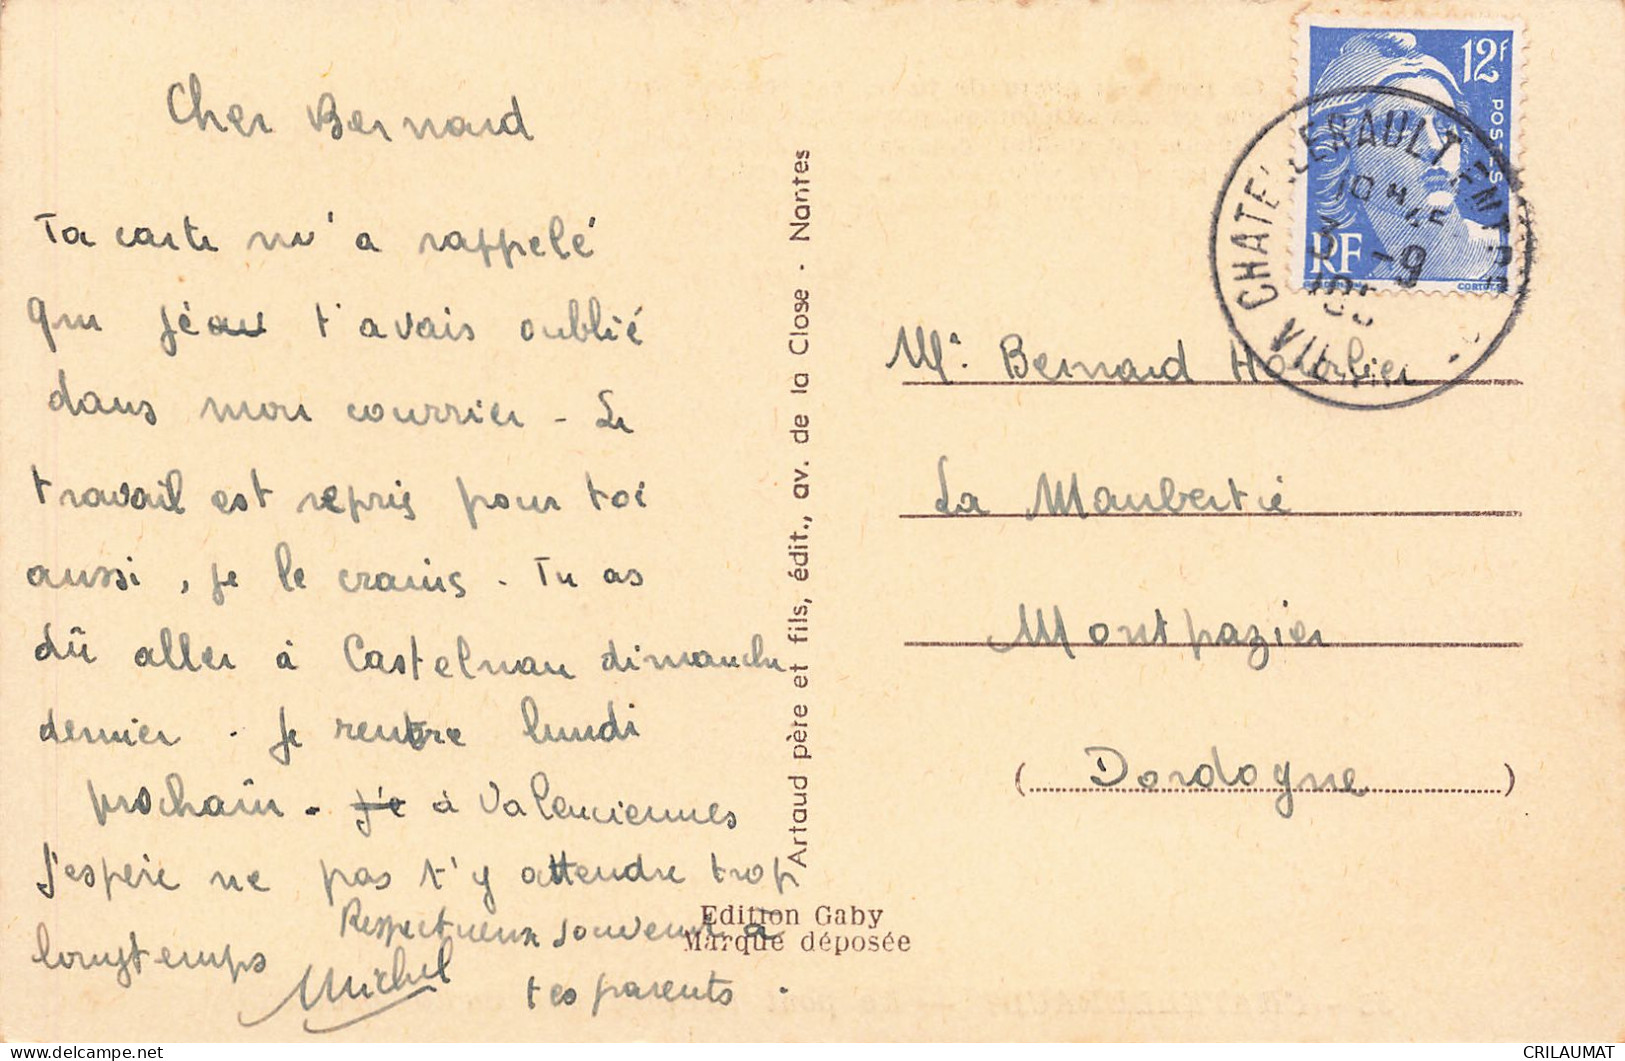 Cher Bernard
Ta carte m'a rappelé
que t'avais oublié
dans mon courrier - Le
travail est repris pour toi
aussi, je le crains. Tu as
dû aller à Castelnau dimanche
dernier. Je rentre lundi
prochain. à Valenciennes
J'espère ne pas t'y attendre trop
longtemps
Respectueux souvenir à
tes parents.
Michel
Artaud père et fils, édit., av. de la Close - Nantes
Edition Gaby
Marque déposée
12f
POSTES
RF
CHATELLERAULT
-9
Mr. Bernard
La Maubertie
Montpazier
(Dordogne)
CRILAUMAT